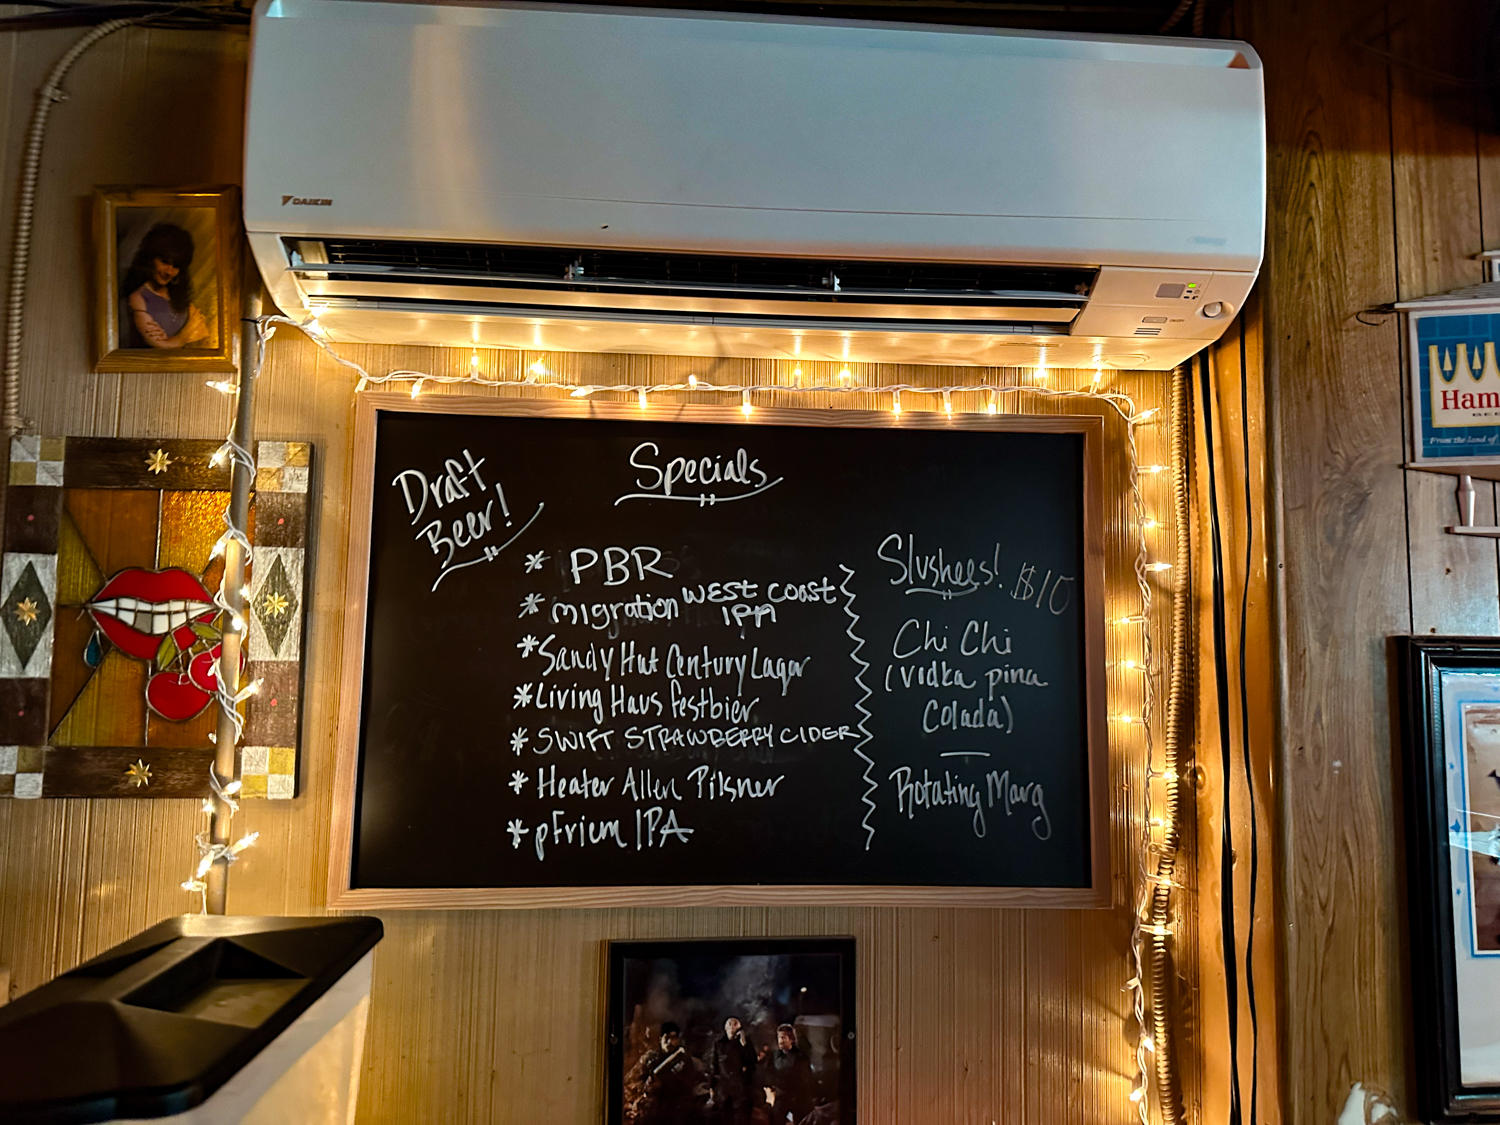 DAIKIN
Specials
Draft
Beer!
* PBR
* Migration West Coast
IPA
* Sandy Hut Century Lager
* Living Haus Festbier
* SWIFT STRAWBERRY CIDER
* Heater Allen Pilsner
* pFriem IPA
Slushees! $10
Chi Chi
(vodka pina
Colada)
Rotating Marg
Ham
From the land of